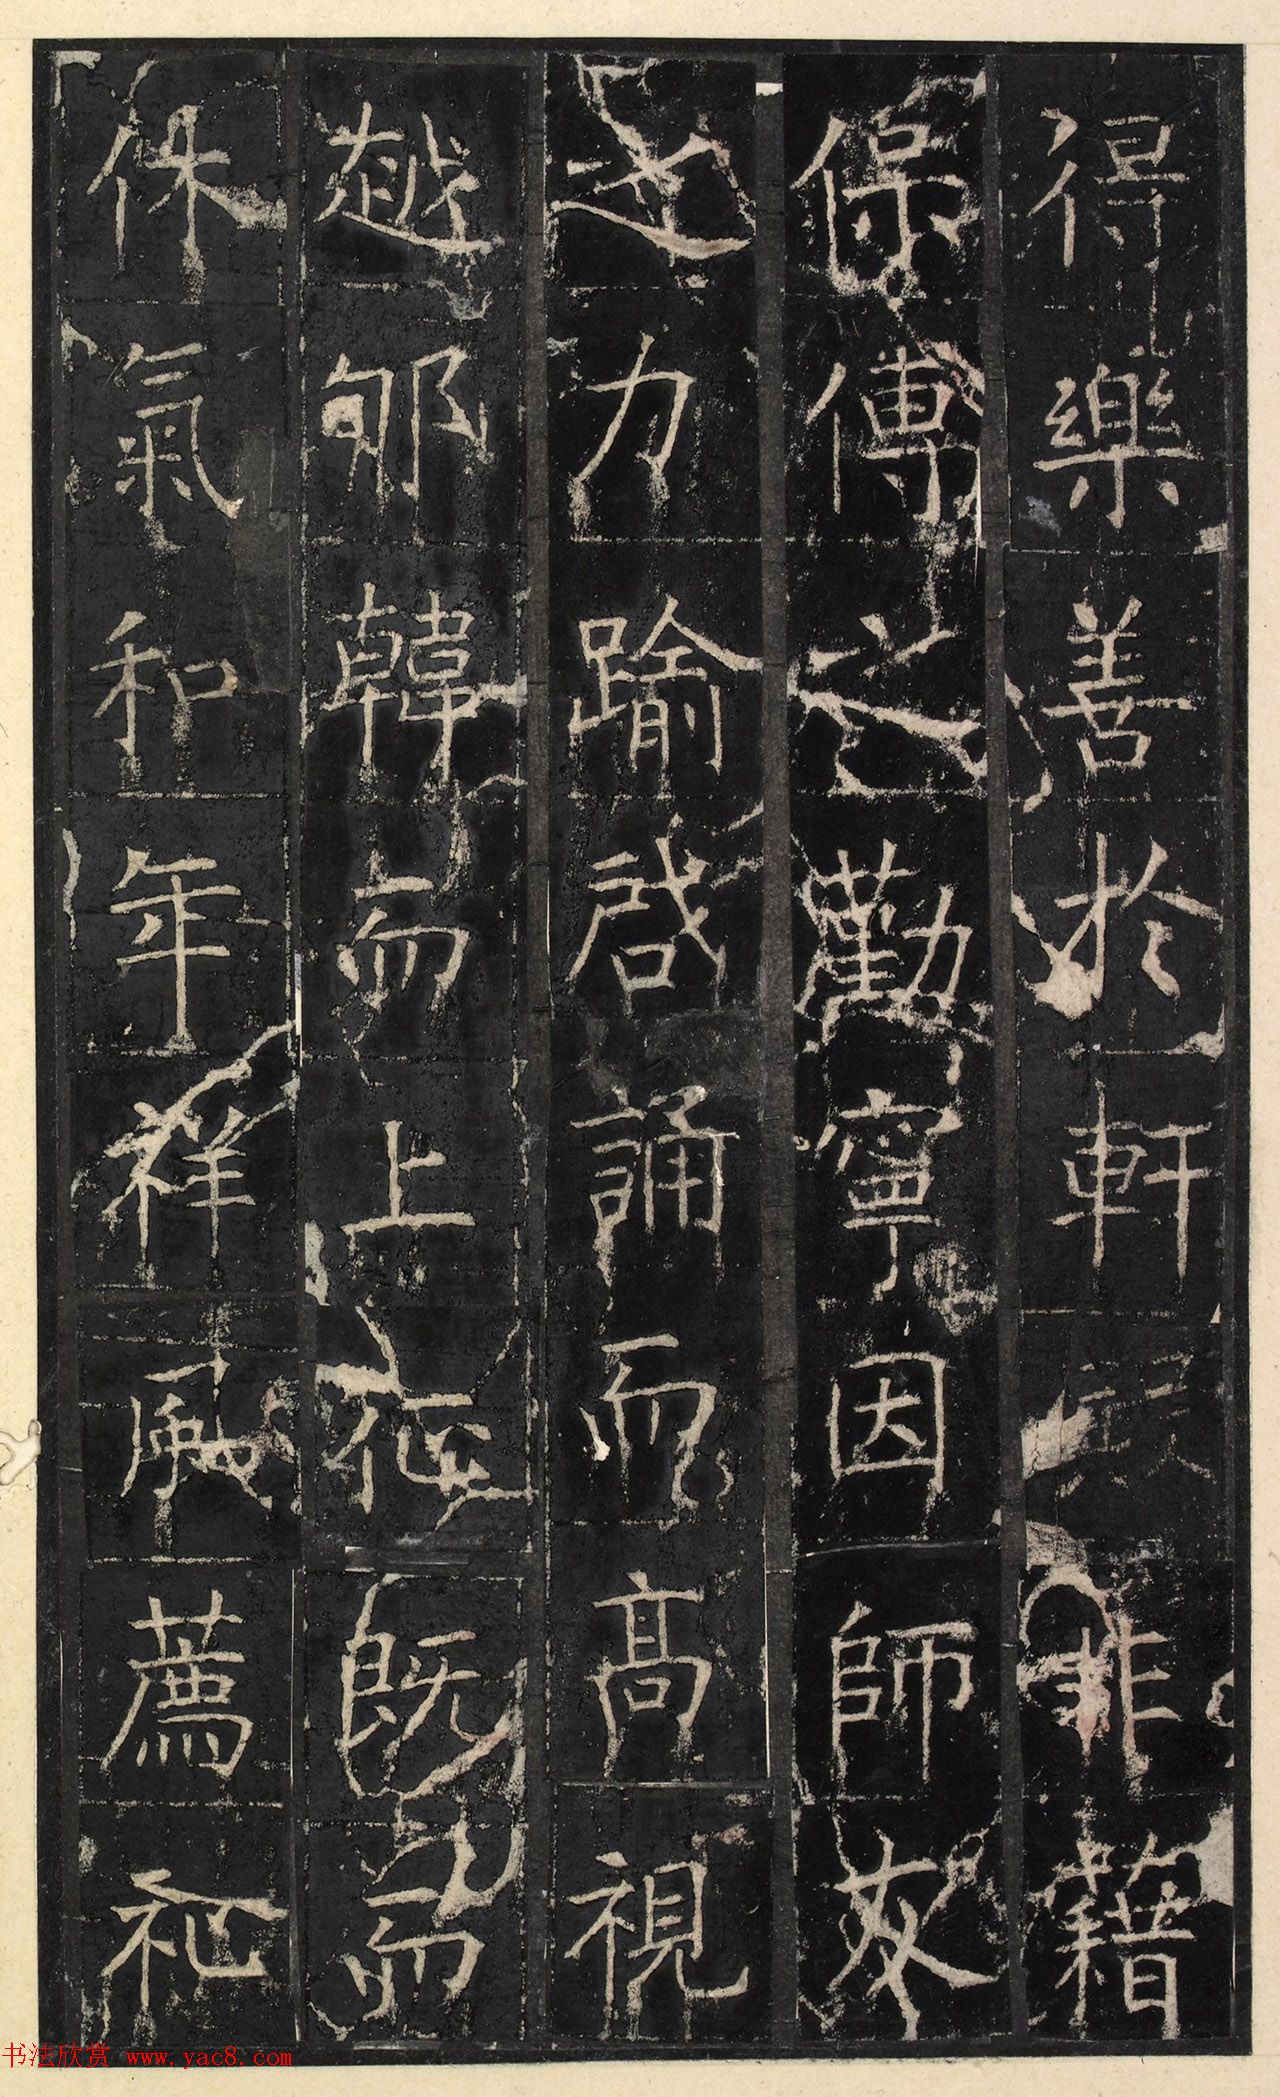 得樂善於軒頊非籍
保傅之勸寧因師友
之力踰啓誦而高視
越邟韓而上征既而
休氣和年祥風薦祉
书法欣赏 www.yac8.com